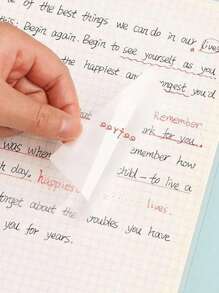 of the best things we can do in our lives
this: Begin again. Begin to see yourself as you
the happiest and youngest you'd
Remember
for you.
was when remember how
day. happiest child - to live a
lives.
forget about the troubles you have
you for years.